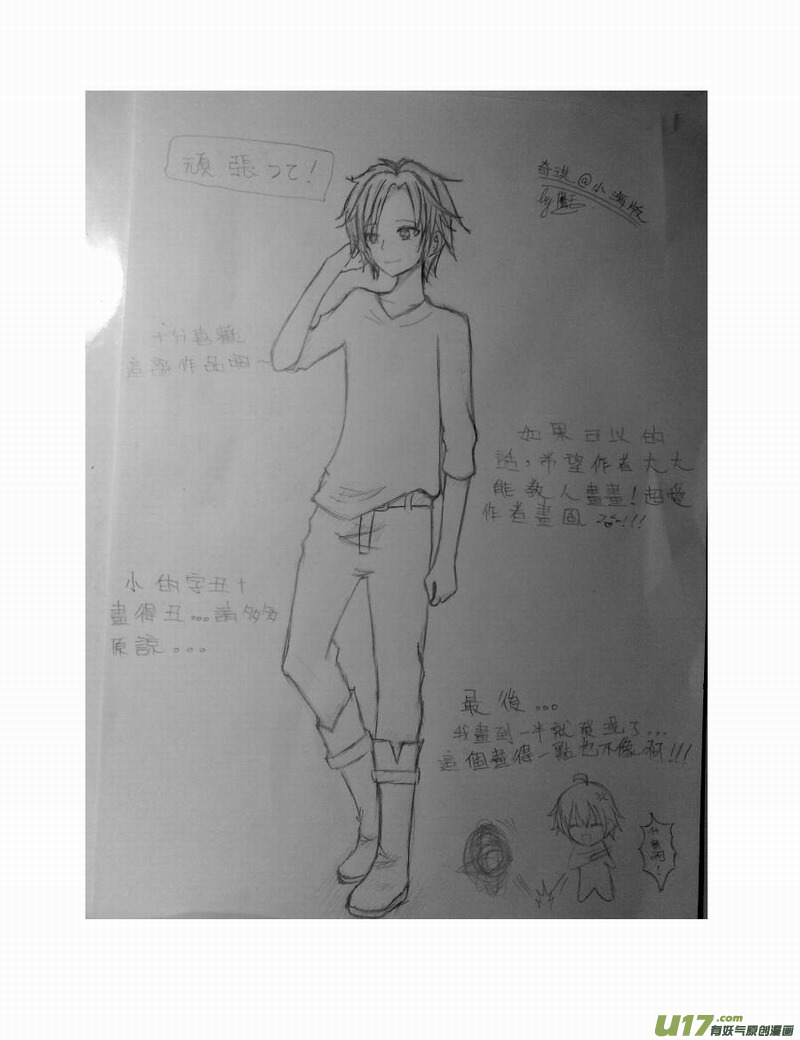 頑張って！
奇譚@小海版
by
十分喜歡
這部作品啊~
如果可以的
話，希望作者大大
能教人畫畫！超愛
作者畫風 !!!
小的字丑+
畫得丑...請多多
原諒...
最後...
我畫到一半就發現了...
這個畫得一點也不像啊!!!
什麼啊!
U17.com
有妖气原创漫画